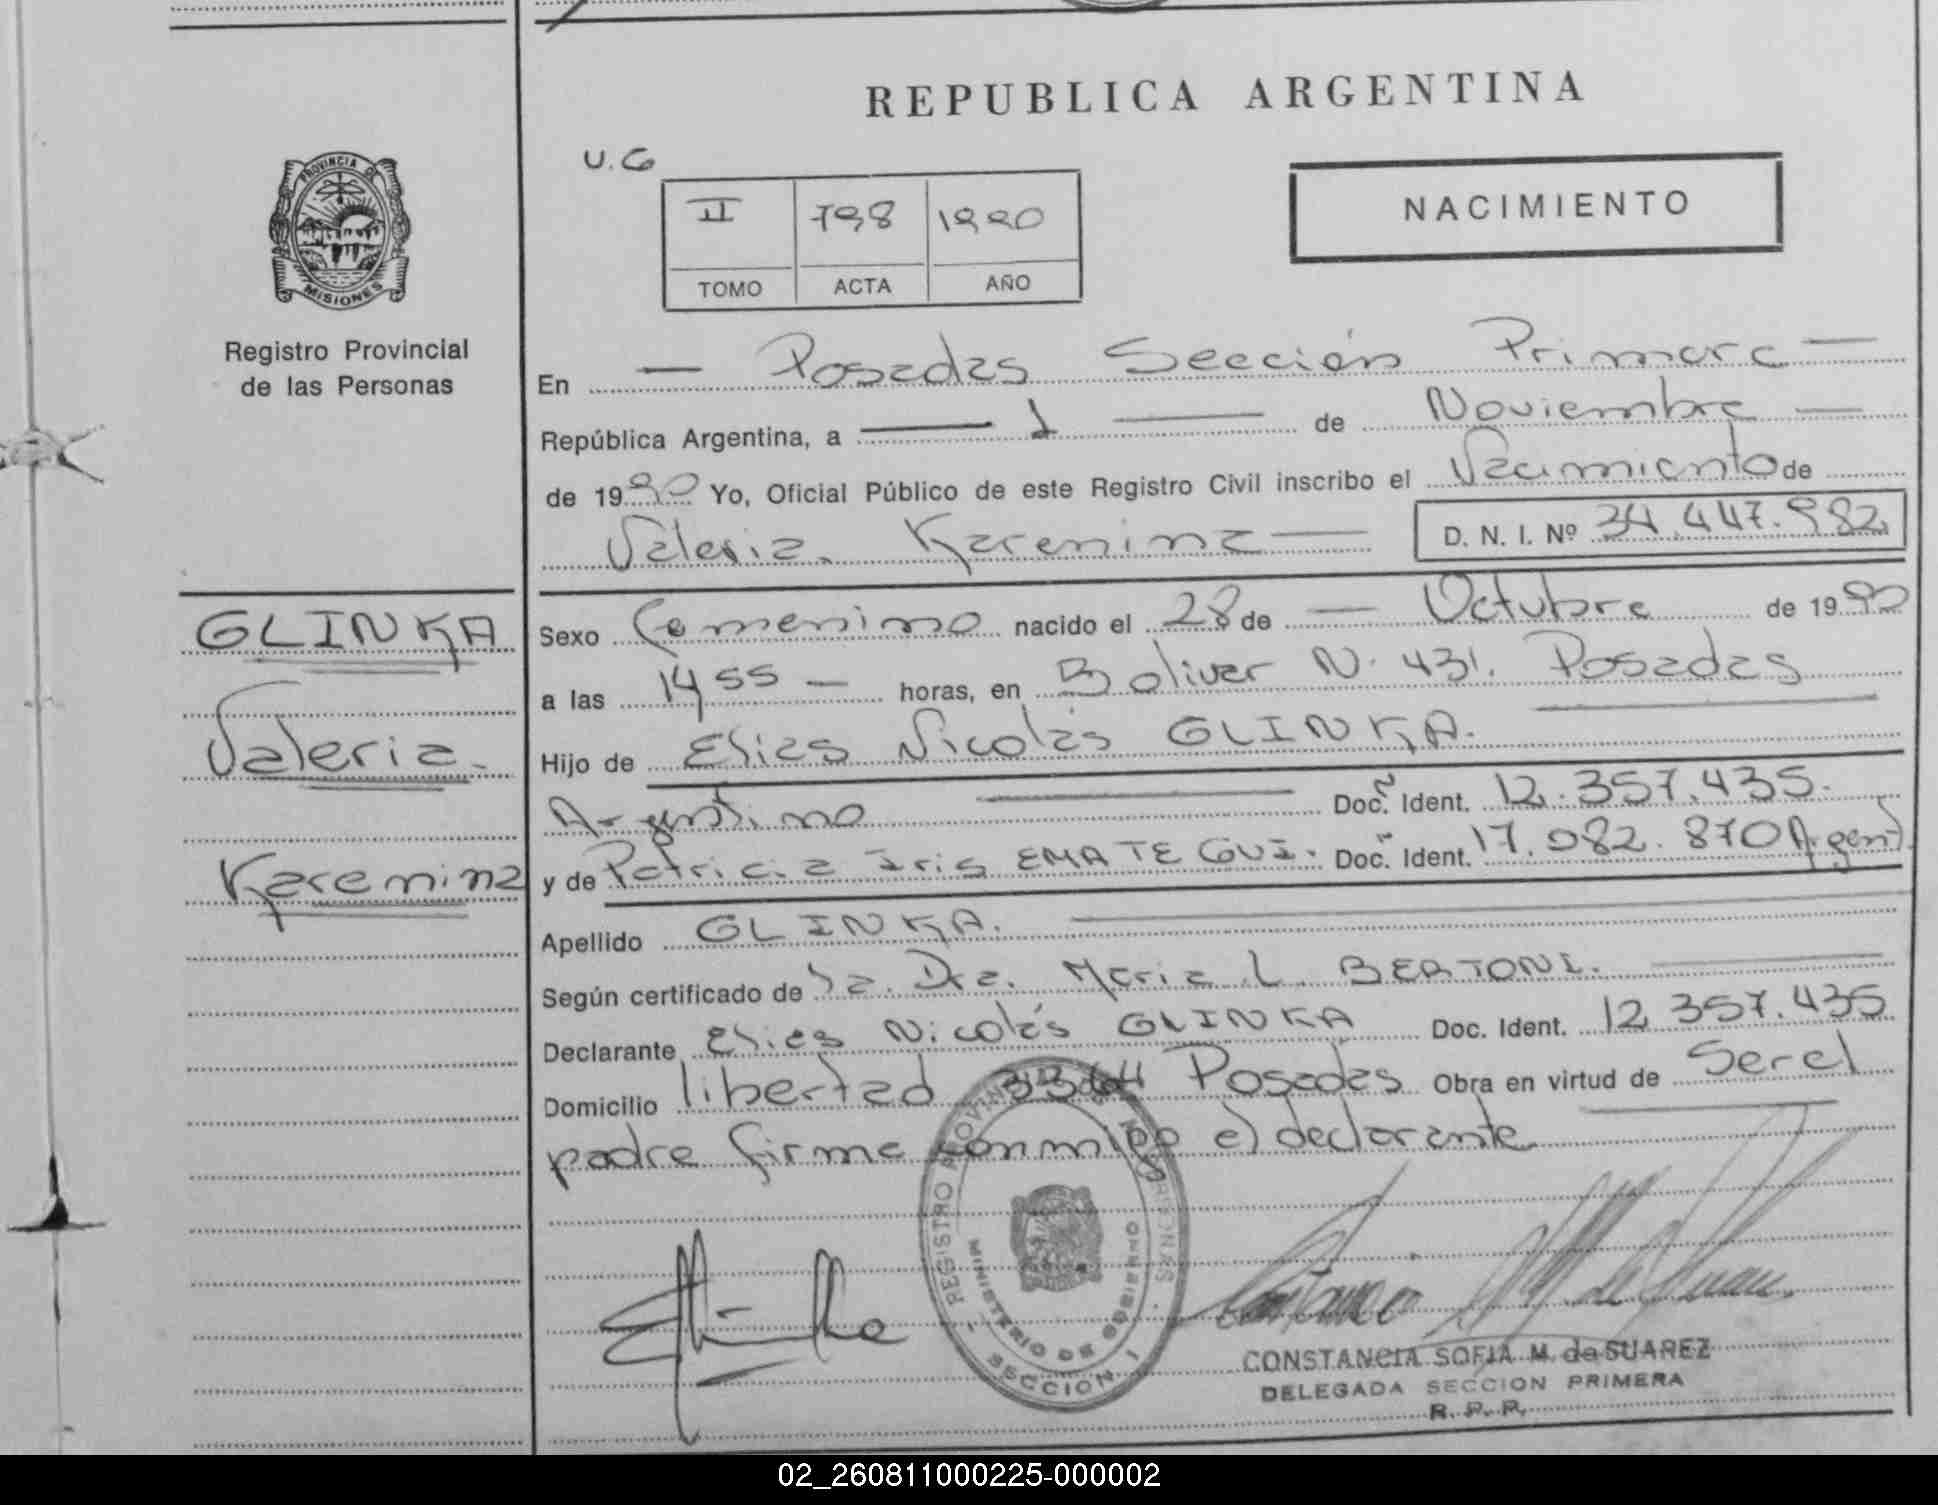 REPUBLICA ARGENTINA
U.G
II 798 1990
TOMO ACTA AÑO
NACIMIENTO
PROVINCIA DE
MISIONES
Registro Provincial
de las Personas
En — Posadas Sección Primera —
República Argentina, a — 1 — de Noviembre —
de 1990 Yo, Oficial Público de este Registro Civil inscribo el Nacimiento de
Valeria Karenina — D. N. I. Nº 34.447.982
GLINKA
Valeria
Karenina
Sexo Femenino nacido el 28 de — Octubre de 1990
a las 14 55 — horas, en Bolivar N. 431. Posadas
Hijo de Elias Nicolás GLINKA.
Argentino — Doc. Ident. 12.357.435.
y de Patricia Iris EMATEGUI. Doc. Ident. 17.082.870 Argent.
Apellido GLINKA.
Según certificado de la. Dra. Maria L. BERTONI.
Declarante Elias Nicolás GLINKA Doc. Ident. 12.357.435
Domicilio libertad 3344 Posadas Obra en virtud de Ser el
padre firma conmigo el declarante
REGISTRO PROVINCIAL DE LAS PERSONAS
MINISTERIO DE GOBIERNO
SECCION 1
CONSTANCIA SOFIA M. de SUAREZ
DELEGADA SECCION PRIMERA
R. P. P.
02_260811000225-000002